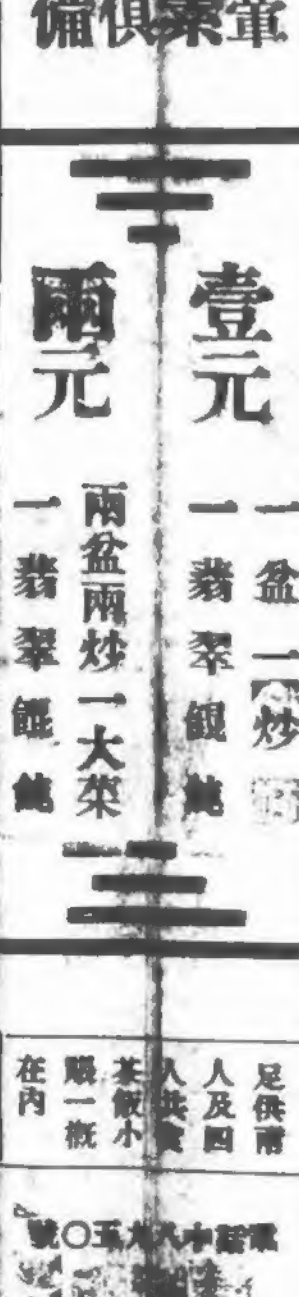 葷素俱備
壹元
一盆一炒
一翡翠餛飩
兩元
兩盆兩炒一大菜
一翡翠餛飩
足供兩
人及四
人共
茶飯小
賬一概
在內
電話中八九五〇號